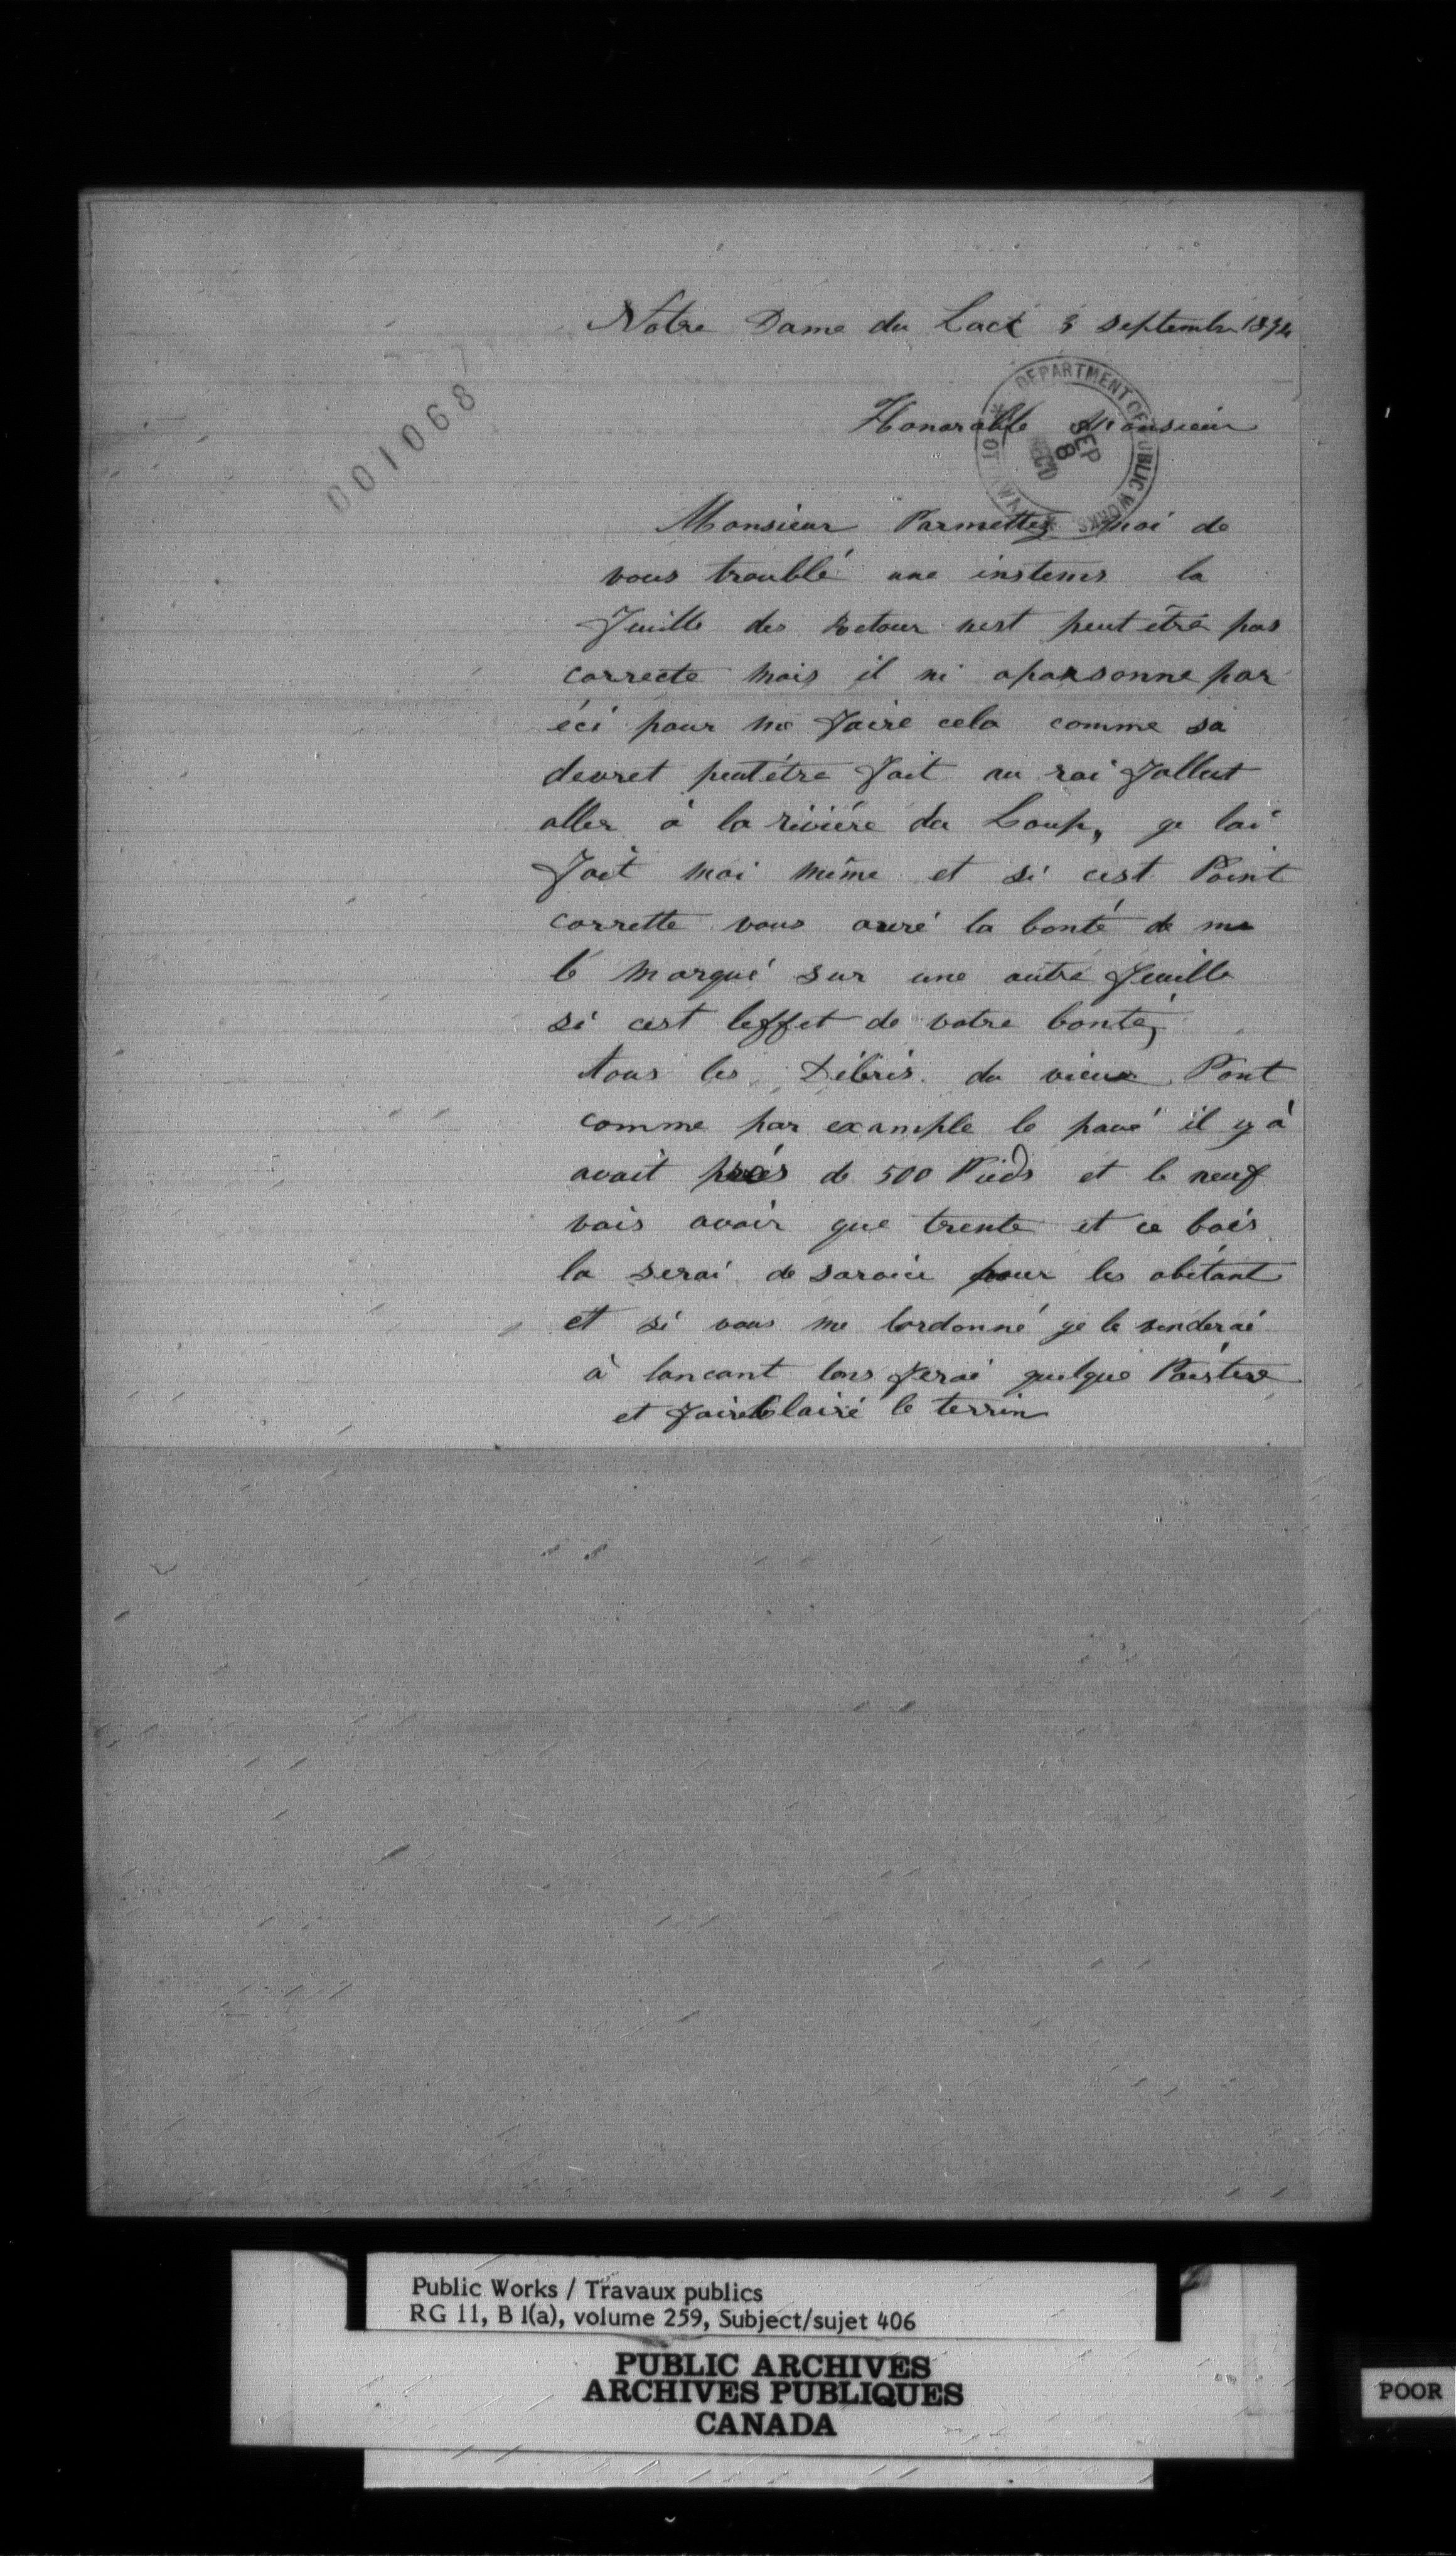 Notre Dame du Lack 3 septembre 1894
001068
DEPARTMENT OF PUBLIC WORKS
SEP 8
REC'D
Honorable Monsieur
Monsieur Parmettez moi de
vous troublé une instems la
feuille des Retour nest peut etre pas
correcte mais il ni apaursonne par
éci pour me faire cela comme sa
devret peutétre fait au rai fallut
aller à la riviére du Loup, ge lai
fait moi même et si cest Point
corrette vous auré la bonté de me
lé marqué sur une autre feuille
si cest leffet de votre bonté,
tous les Débris du vieux Pont
comme par example le pavé il y à
avait prés de 500 Pieds et le neuf
vais avoir que trente et ce bois
la serai de sarvice pour les abitant
et si vous me lordonné ge le venderai
à lancant lons ferai quelque Piastre
et faire claire le terrin
Public Works / Travaux publics
RG 11, B 1(a), volume 259, Subject/sujet 406
PUBLIC ARCHIVES
ARCHIVES PUBLIQUES
CANADA
POOR